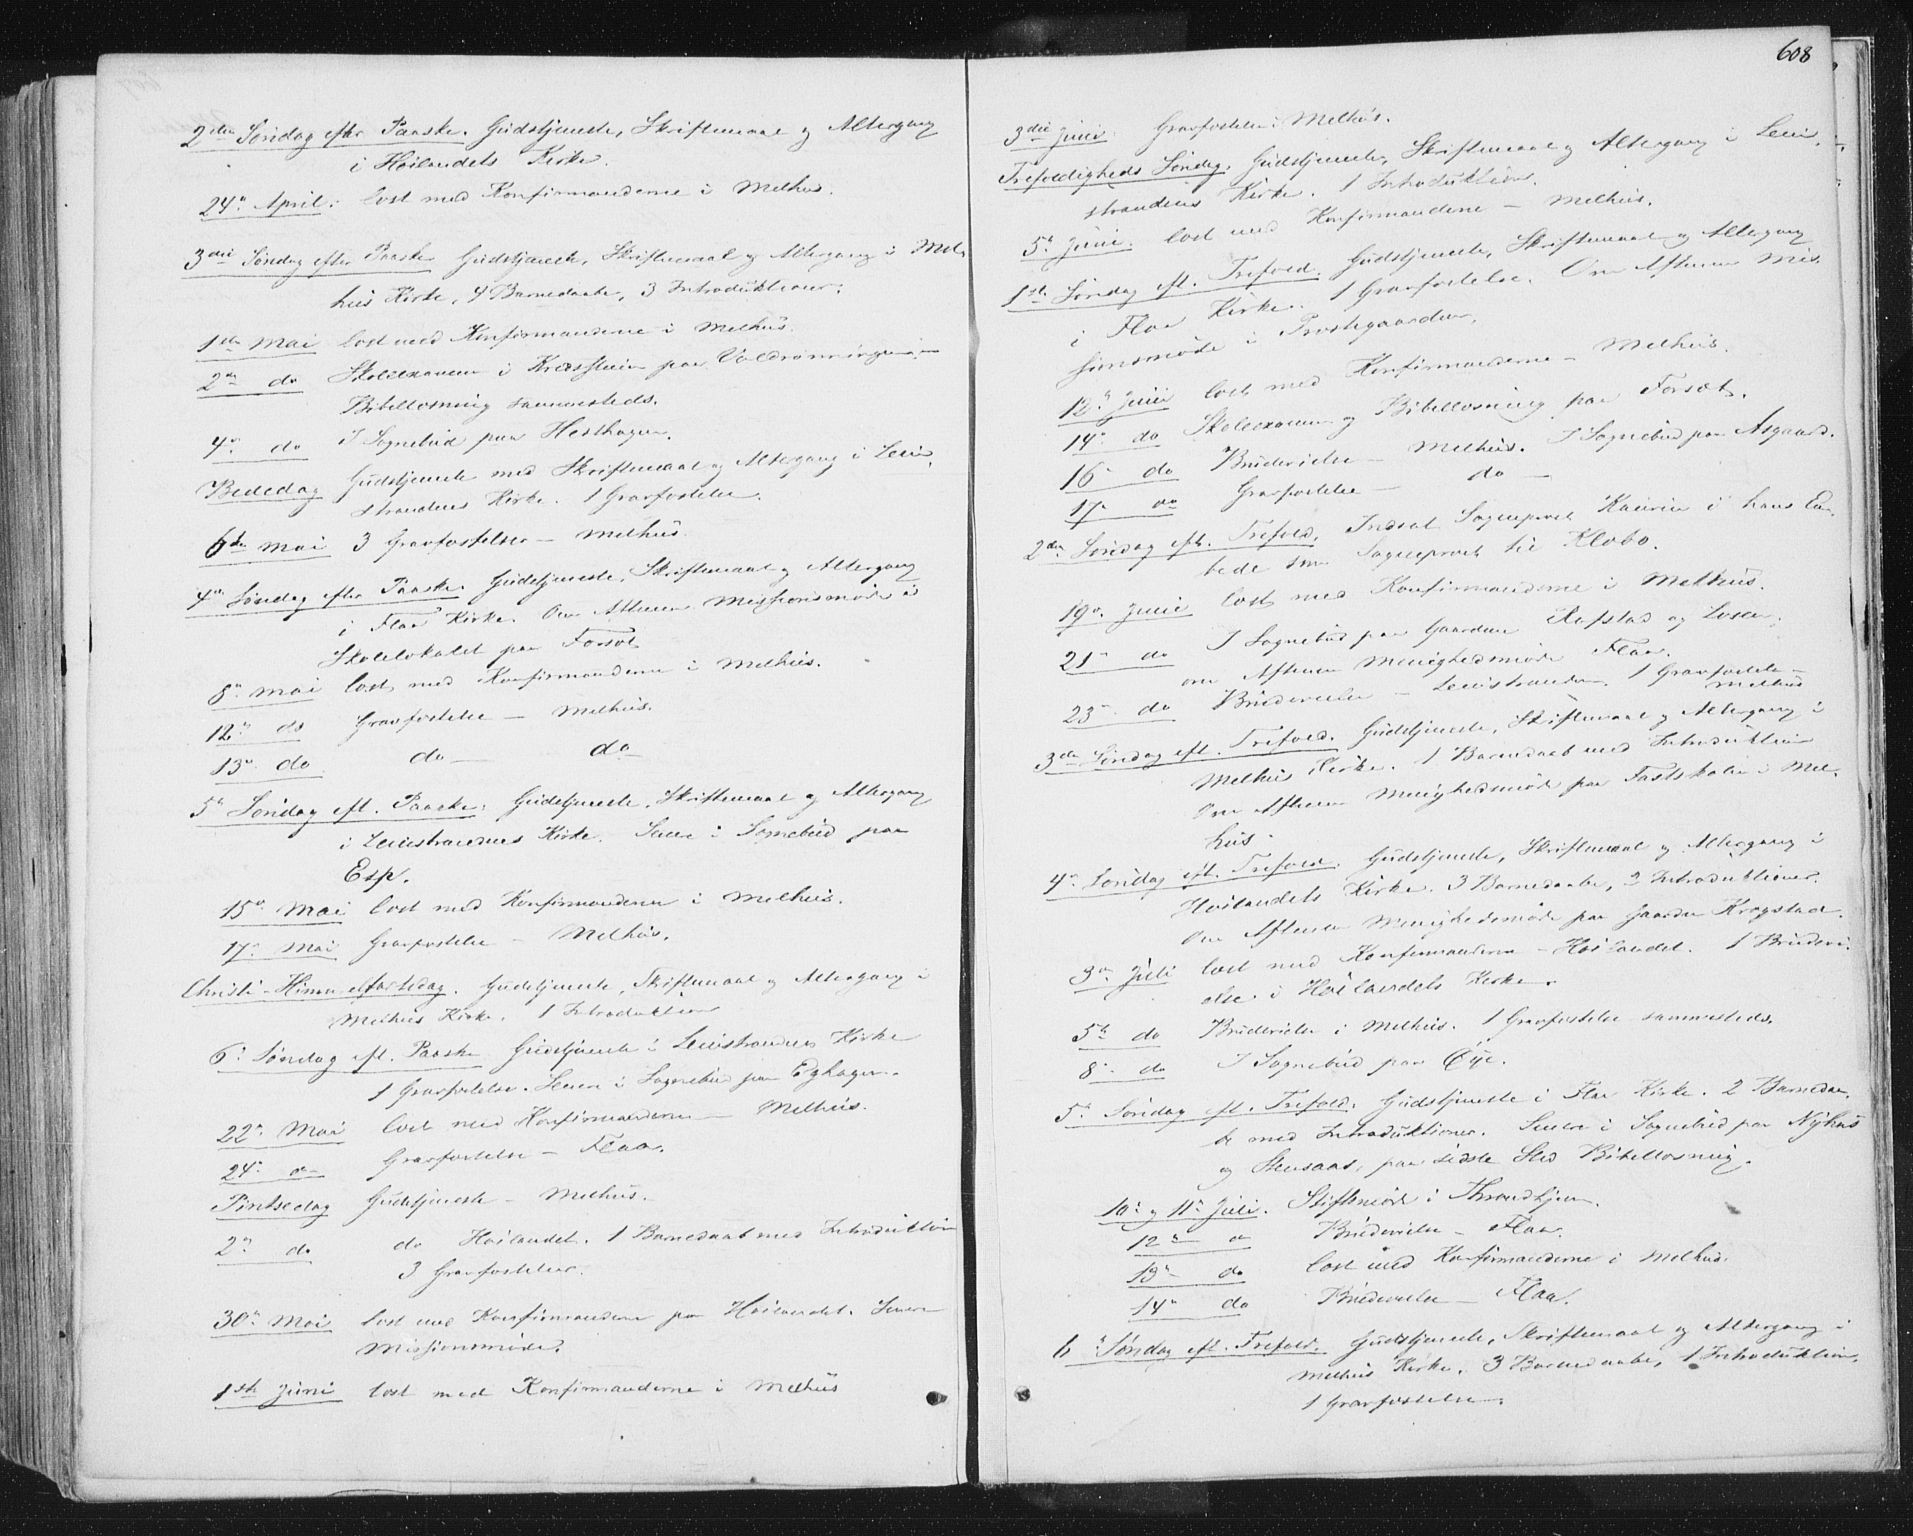 2den Søndag efter Paaske. Gudstjeneste, Skriftemaal og Altergang
i Høilandets Kirke.
24de April: læst med Konfirmanderne i Melhus.
3die Søndag efter Paaske Gudstjeneste, Skriftemaal og Altergang i Mel-
hus Kirke, 4 Barnedaabe, 3 Introduktioner.
1ste Mai læst med Konfirmanderne i Melhus.
2den do Skoleexamen i Kredsen paa
Bibellæsning sammesteds.
4de do I Sognebud paa Hesthagen.
Bededag Gudstjeneste med Skriftemaal og Altergang i Lein-
strandens Kirke. 1 Gravfæstelse.
6te Mai 3 Gravfæstelser – Melhus
4de Søndag efter Paaske Gudstjeneste, Skriftemaal og Altergang
i Flaa Kirke. Om Aftenen Missionsmøde i
Skolelokalet paa Forsæt
8de Mai læst med Konfirmanderne i Melhus.
12te do Gravfæstelse – Melhus.
13de do do – do
5te Søndag eft. Paaske: Gudstjeneste, Skriftemaal og Altergang
i Leinstrandens Kirke. Senere i Sognebud paa
Esp.
15de Mai læst med Konfirmanderne i Melhus.
17de Mai Gravfæstelse – Melhus.
Christi-Himmelfartsdag. Gudstjeneste, Skriftemaal og Altergang i
Melhus Kirke. 1 Introduktion
6te Søndag eft. Paaske Gudstjeneste i Leinstrandens Kirke
1 Gravfæstelse. Senere i Sognebud paa Eghagen.
22de Mai læst med Konfirmanderne – Melhus.
24de do Gravfæstelse – Flaa.
Pintsedag Gudstjeneste – Melhus.
2den do do Høilandet. 1 Barnedaab med Introduktion
3 Gravfæstelser.
30te Mai læst med Konfirmanderne paa Høilandet. Senere
Missionsmøde.
1ste Juni læst med Konfirmanderne i Melhus
608
3die Juni: Gravfæstelse i Melhus.
Trefoldigheds Søndag: Gudstjeneste, Skriftemaal og Altergang i Lein-
strandens Kirke. 1 Introduktion.
5te Juni: læst med Konfirmanderne – Melhus.
1ste Søndag eft. Trefold. Gudstjeneste, Skriftemaal og Altergang
i Flaa Kirke. 1 Gravfæstelse. Om Aftenen Mis-
sionsmøde i Provstegaarden.
12te Juni læst med Konfirmanderne – Melhus.
14de do Skoleexamen og Bibellæsning paa Forsæt.
16de do Brudevielse – Melhus. I Sognebud paa Asgaard.
17de do Gravfæstelse – do –
2den Søndag eft. Trefold. Indsat Sogneprest Kaurin i hans Em-
bede som Sogneprest til Klæbo.
19de Juni læst med Konfirmanderne i Melhus.
21de do I Sognebud paa Gaardene Rafstad og Losen.
om Aftenen Menighedsmøde Flaa.
23de do Brudevielse – Leinstranden. 1 Gravfæstelse –
Melhus
3die Søndag eft. Trefold. Gudstjeneste, Skriftemaal og Altergang i
Melhus Kirke. 1 Barnedaab med Introduktion
Om Aftenen Menighedsmøde paa Fastskolen i Mel-
hus
4de Søndag eft. Trefold. Gudstjeneste, Skriftemaal og Altergang i
Høilandets Kirke. 3 Barnedaabe, 2 Introduktioner.
Om Aftenen Menighedsmøde paa Gaarden Krogstad.
3die Juli læst med Konfirmanderne – Høilandet. 1 Brudevi-
else i Høilandets Kirke.
5te do Brudevielse i Melhus. 1 Gravfæstelse sammesteds.
8de do I Sognebud paa Øye.
5te Søndag eft. Trefold: Gudstjeneste i Flaa Kirke. 2 Barnedaa-
be med Introduktioner. Senere i Sognebud paa Nyhus
og Stensaas, paa sidste Sted Bibellæsning.
10de og 11te Juli. Stiftsmøde i Throndhjem.
12te do Brudevielse – Flaa.
13de do læst med Konfirmanderne i Melhus.
14de do Brudevielse – Flaa.
6te Søndag eft. Trefold. Gudstjeneste, Skriftemaal og Altergang i
Melhus Kirke. 3 Barnedaabe, 1 Introduktion,
1 Gravfæstelse.